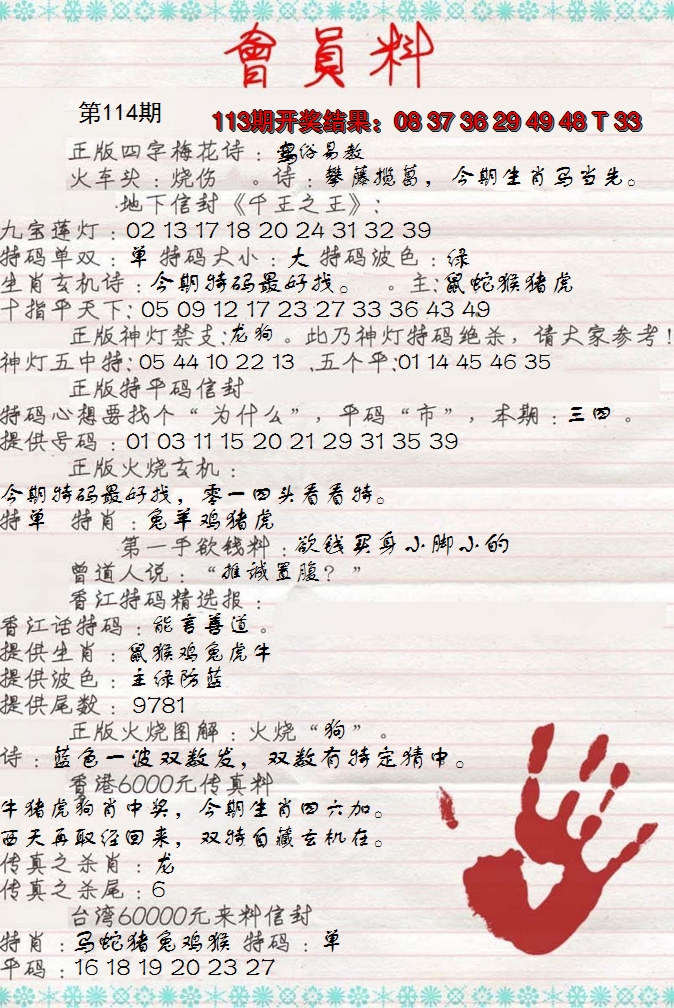 會員料
第114期
113期开奖结果：08 37 36 29 49 48 T 33
正版四字梅花诗：俗易教
火车头：烧伤 。诗：攀藤揽葛，今期生肖马当先。
地下信封《千王之王》：
九宝莲灯：02 13 17 18 20 24 31 32 39
特码单双：单 特码大小：大 特码波色：绿
生肖玄机诗：今期特码最好找。 。主：鼠蛇猴猪虎
十指平天下：05 09 12 17 23 27 33 36 43 49
正版神灯禁支：龙狗。此乃神灯特码绝杀，请大家参考！
神灯五中特：05 44 10 22 13 .五个平：01 14 45 46 35
正版特平码信封
特码心想要找个“为什么”，平码“市”，本期：三四。
提供号码：01 03 11 15 20 21 29 31 35 39
正版火烧玄机：
今期特码最好找，零一四头看看特。
特单 特肖：兔羊鸡猪虎
第一手欲钱料：欲钱买身小脚小的
曾道人说：“推诚置腹？”
香江特码精选报：
香江话特码：能言善道。
提供生肖：鼠猴鸡兔虎牛
提供波色：主绿防蓝
提供尾数：9781
正版火烧图解：火烧“狗”。
诗：蓝色一波双数发，双数有特定猜中。
香港6000元传真料
牛猪虎狗肖中奖，今期生肖四六加。
西天再取经回来，双特自藏玄机在。
传真之杀肖：龙
传真之杀尾：6
台湾60000元来料信封
特肖：马蛇猪兔鸡猴 特码：单
平码：16 18 19 20 23 27